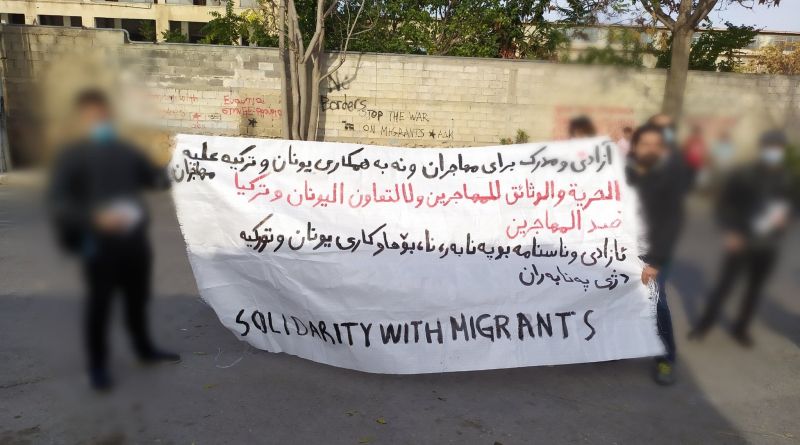 No
Borders
STOP THE WAR
ON MIGRANTS
آزادی و مدرک برای مهاجران و نه به همکاری یونان و ترکیه علیه
مهاجران
الحرية والوثائق للمهاجرين ولا لتعاون اليونان و تركيا
ضد المهاجرين
ئازادی و ناسنامە بو پەنابەر، نا، بۆ هاوکاری یونان و تورکیە
دژی پەنابەران
SOLIDARITY WITH MIGRANTS